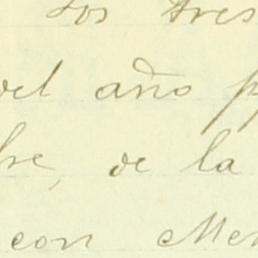 los tres
del año p
bre, de la
con Mer